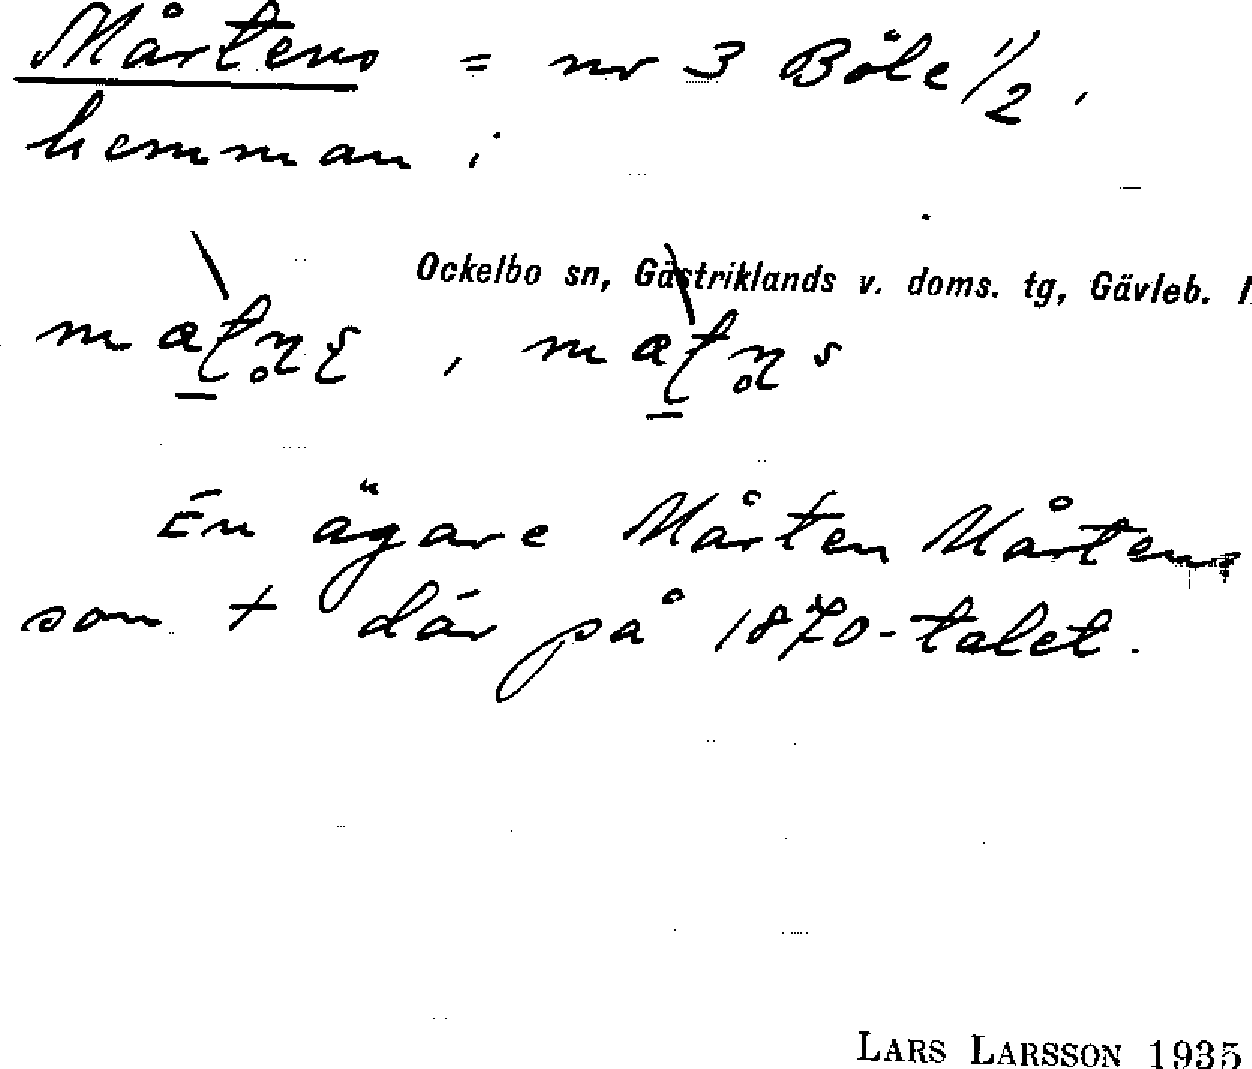 Mårtens = nr 3 Böle 1/2,
hemman i
Ockelbo sn, Gästriklands v. doms. tg, Gävleb. l
En ägare Mårten Mårtens
son + där på 1870-talet.
LARS LARSSON 1935